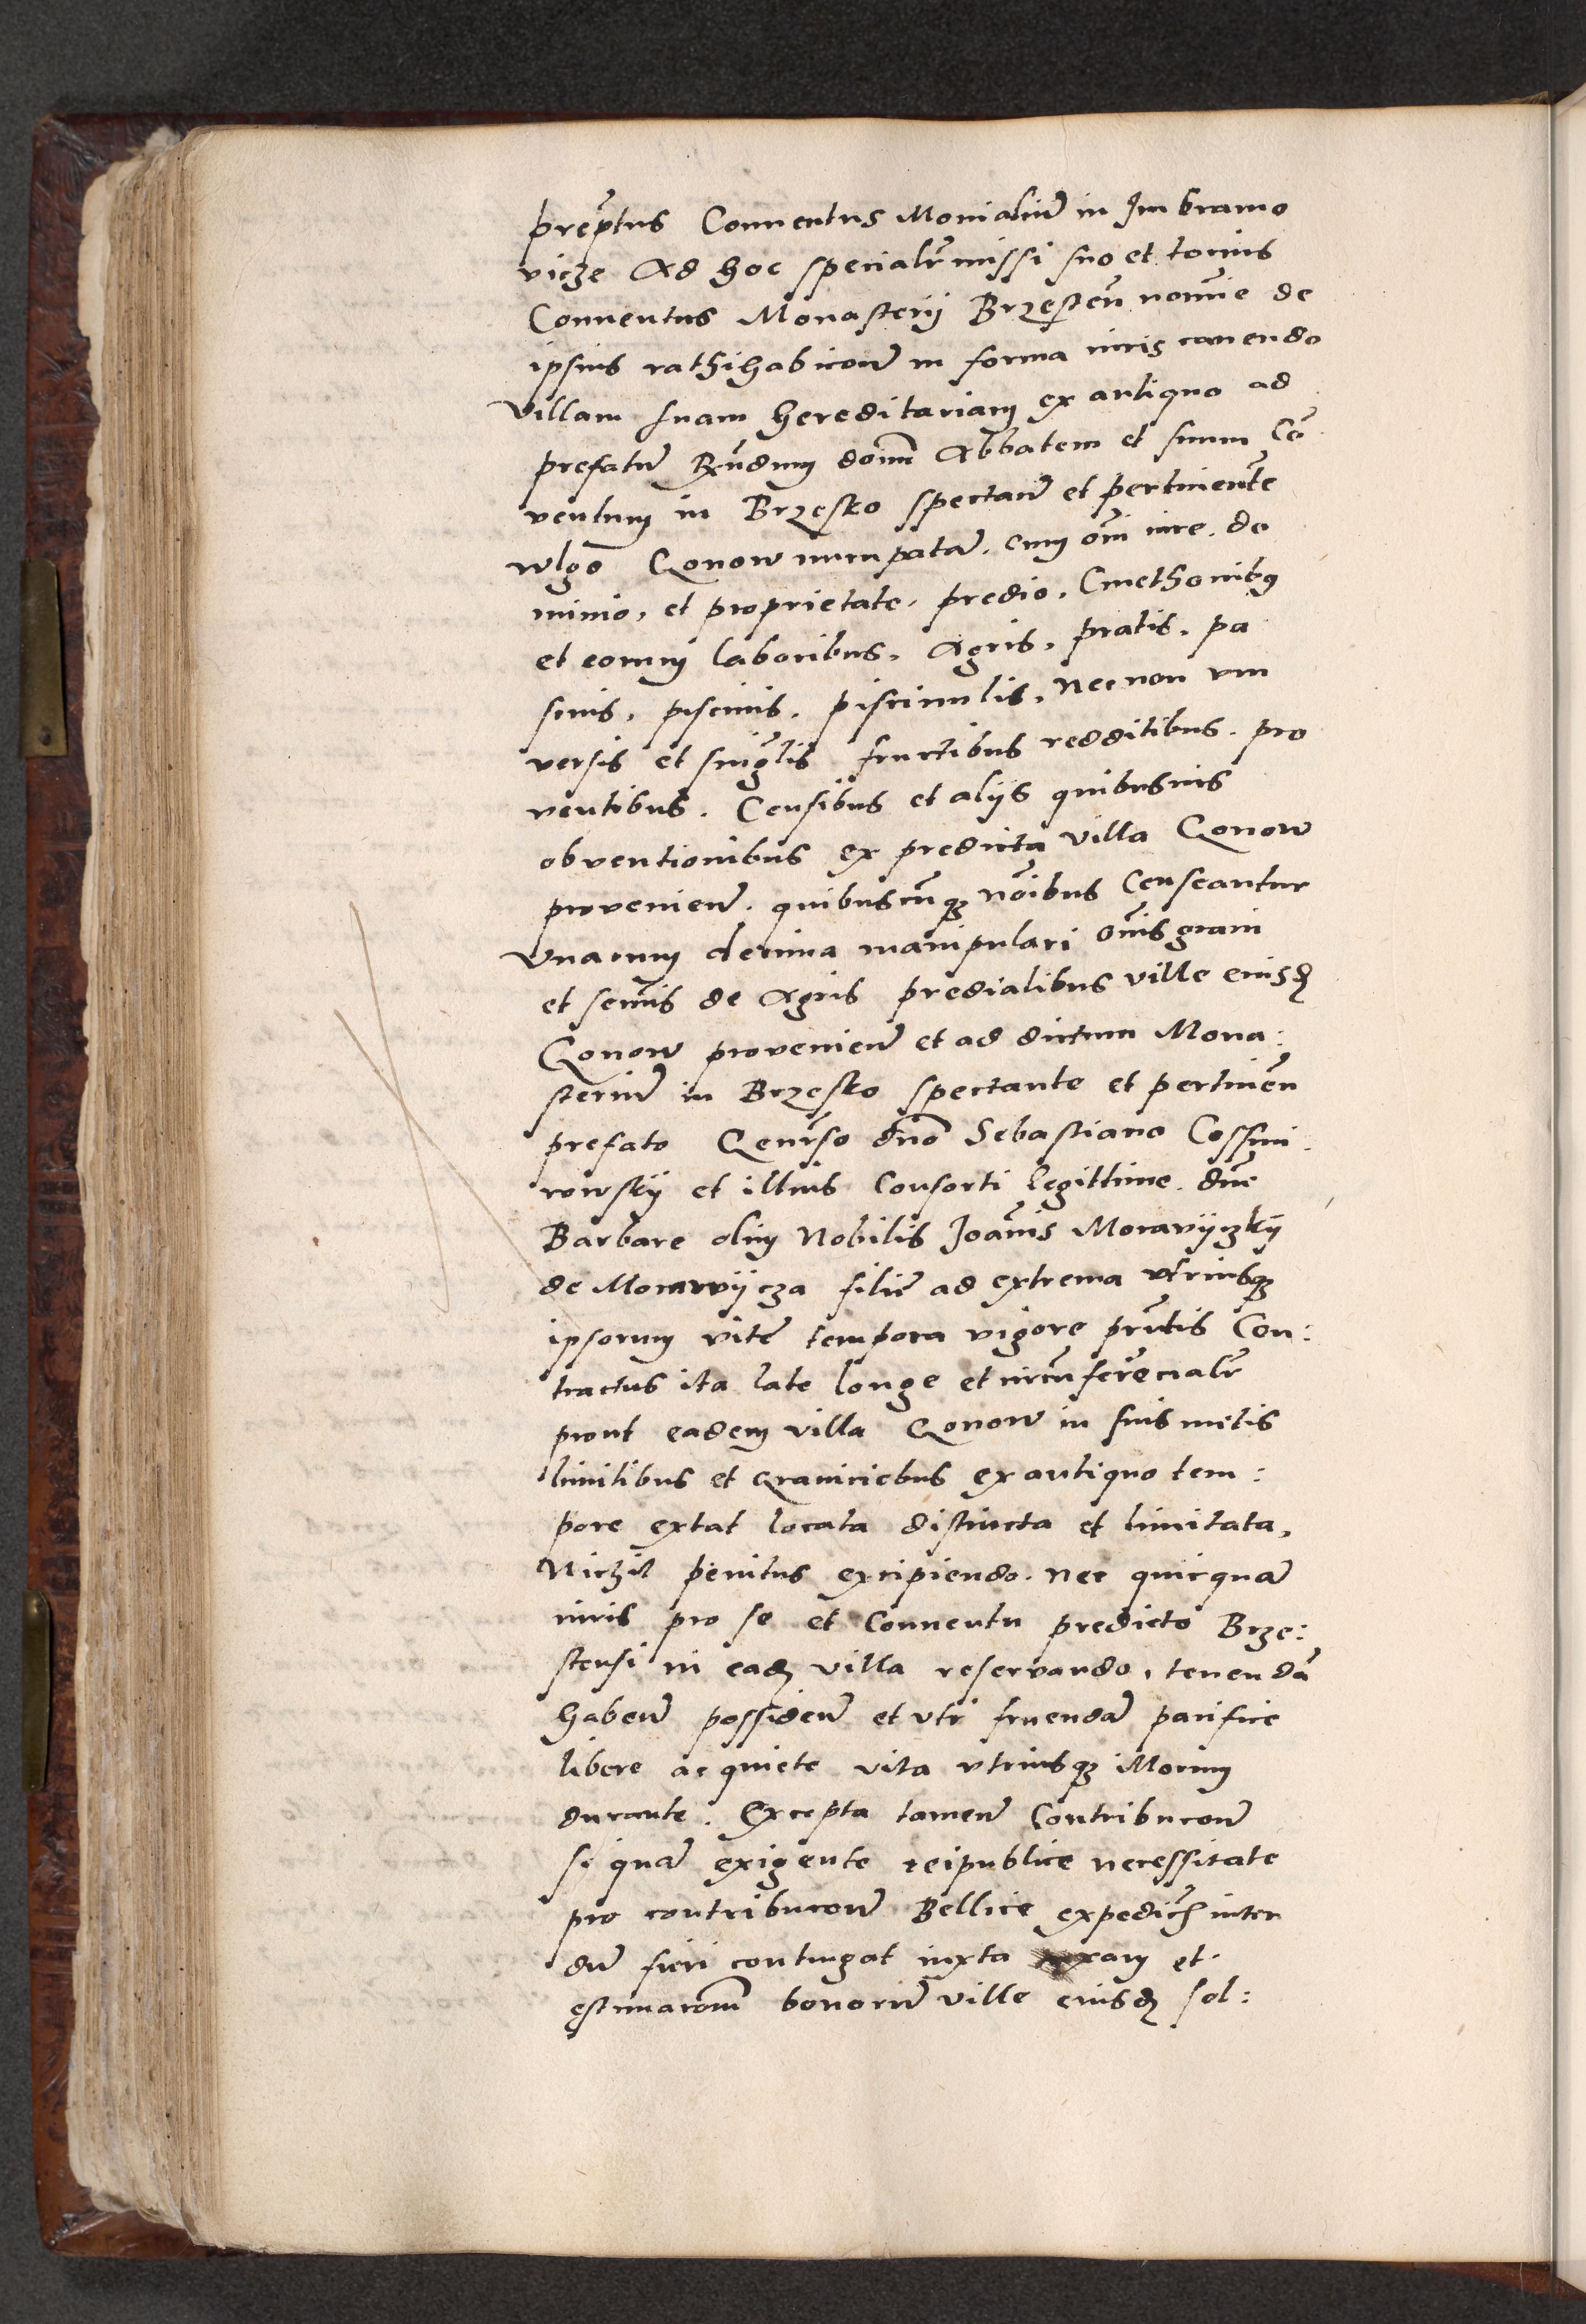 prep̃tus Conuentus Monialiũ in Imbramo
vicze Ad hoc specialr̃ missi suo et tocius
Conuentus Monasterij Brzesten̄ nom̄ie de
ipsius rathihabicoñe in forma iuris cauendo
Villam suam hereditariam ex antiquo ad
prefatũ Rñdum dom̄ Abbatem et suum Cõ
ventum in Brzesko spectañ et pertinente
wlgo Gonow nuncupatã. cum om̄i iure. do
minio, et proprietate, predio, Cmethonibꝫ
et eorum laboribus, Agris, pratis, pa
scuis, piscinis, piscinulis, necnon vni
versis et singl̄is fructibus redditibus. pro
ventibus. Censibus et alijs quibusuis
obventionibus ex predicta villa Gonow
provenieñ. quibuscũqꝫ nõibus Censeantur
Vnacum decima manipulari om̄is grani
et semīs de Agris predialibus ville eiusd
Gonow provenieñ et ad dictum Mona:
steriũ in Brzesko spectante et pertineñ
prefato Generso dño Sebastiano Cossmi
rowskij et illius Consorti legittime. dñe
Barbare olim Nobilis Joan̄is Morawijczkij
de Morawijcza filie ad extrema vtriusqꝫ
ipsorum vite tempora vigore pñtis Con:
tractus ita late longe et circũferencialr̃
prout eadem villa Gonow in suis metis
limitibus et Graniciebus ex antiquo tem:
pore extat locata distincta et limitata,
Nichil penitus excipiendo. nec quicquã
iuris pro se et Conuentu predicto Brze:
stensi in ead villa reservando, tenendã
habeñ possideñ et vti fruendã pacifice
libere ac quiete vita vtriusqꝫ illorum
durante. Excepta tameñ Contribucoñe
si quã exigente reipublice necessitate
pro contribucoñe Bellice expedic̃ inter
dũ fieri contingat iuxta taxam et
estimacom̄ bonorũ ville eiusd sol: